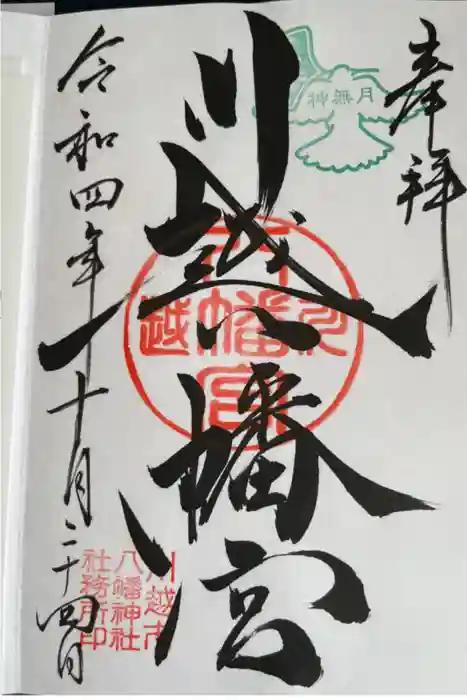 奉拝
神無月
川越八幡宮
川越八幡宮
川越市
八幡神社
社務所印
令和四年十月二十四日